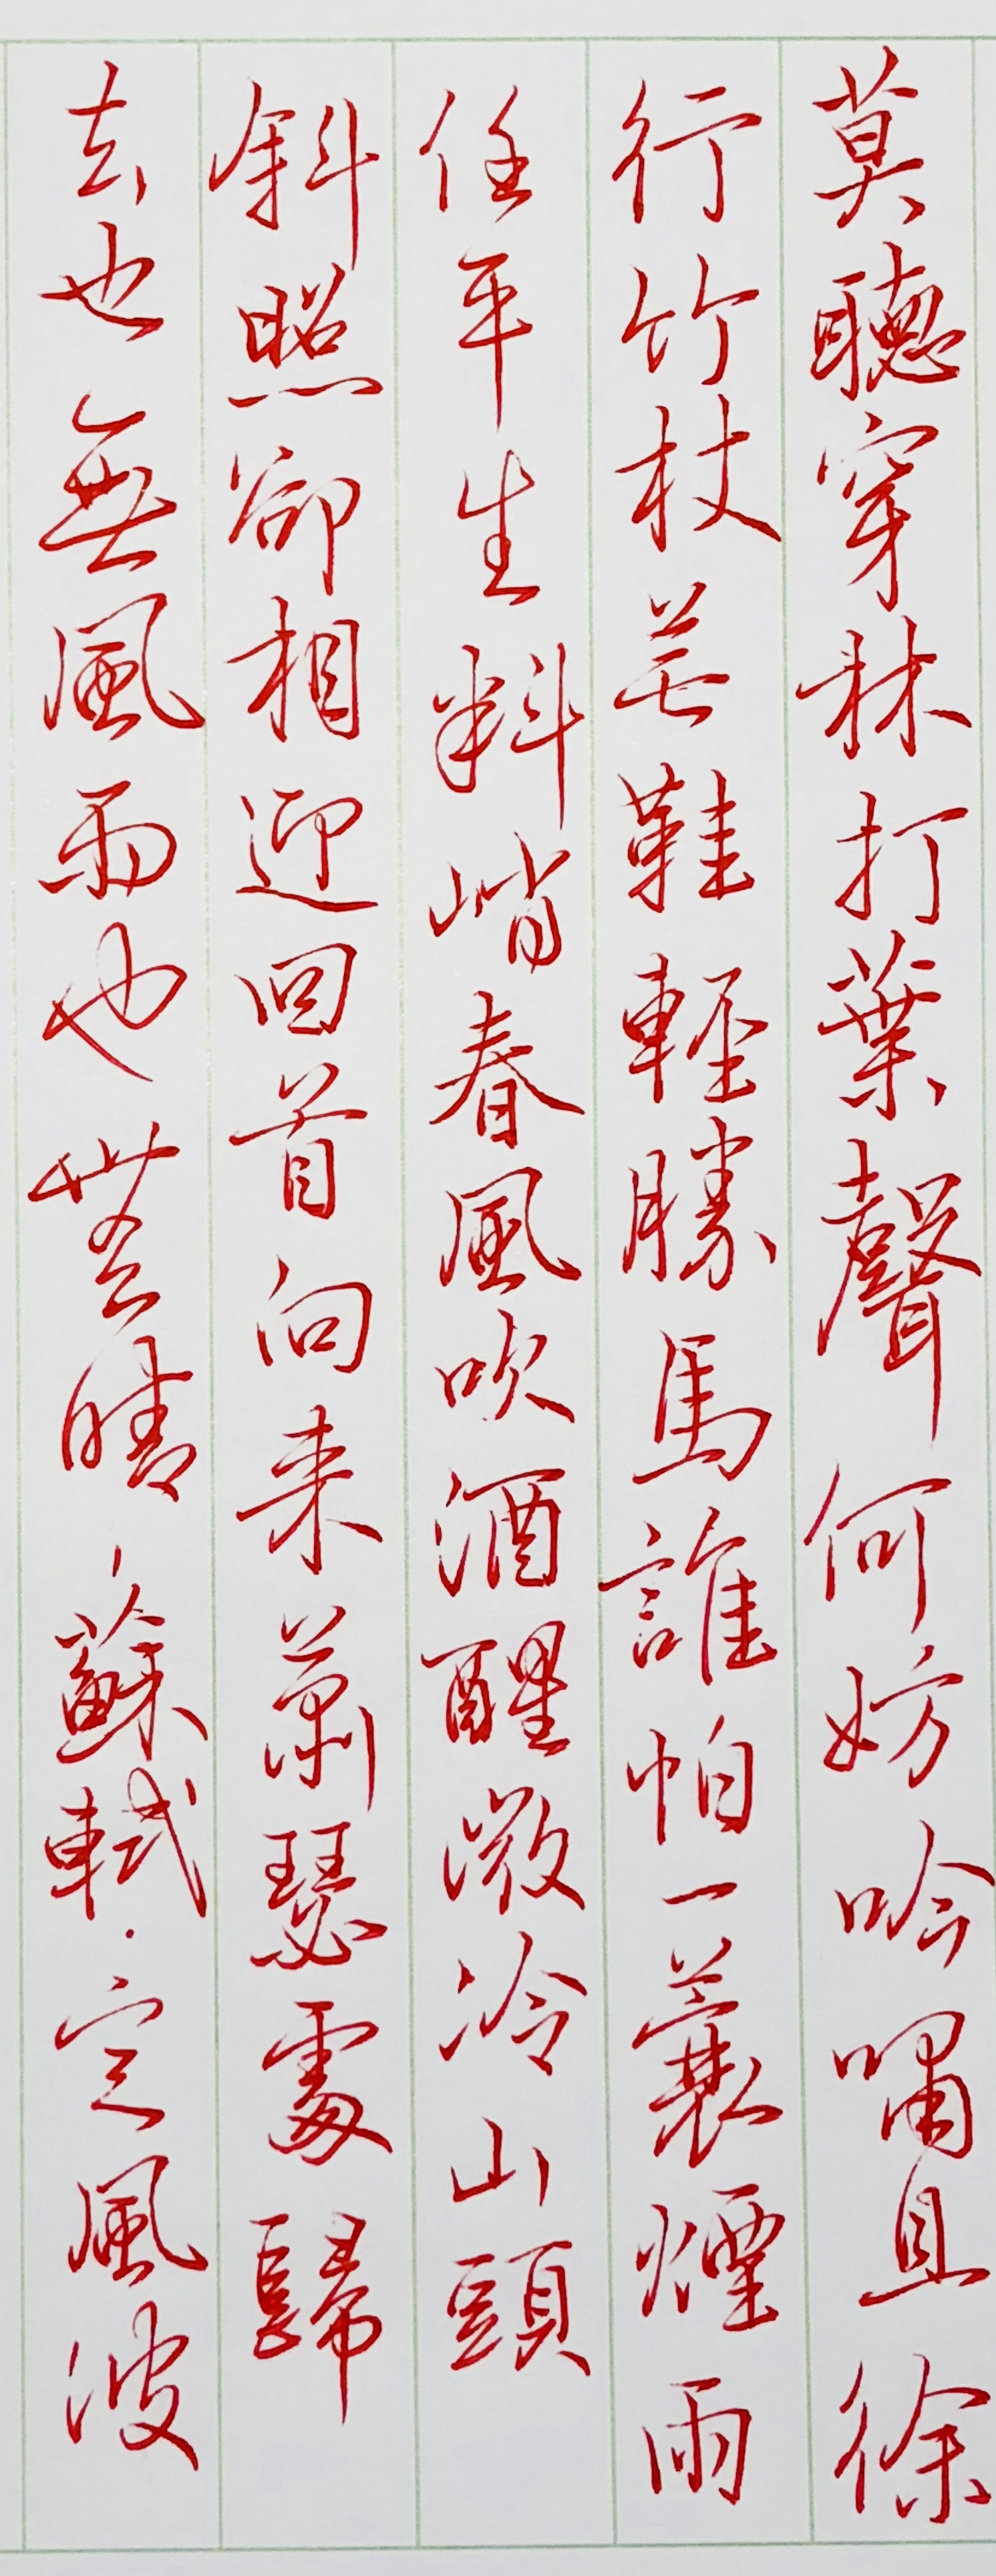 莫聽穿林打葉聲何妨吟嘯且徐
行竹杖芒鞋輕勝馬誰怕一蓑煙雨
任平生料峭春風吹酒醒微冷山頭
斜照卻相迎回首向来蕭瑟處歸
去也無風雨也無晴、蘇軾·定風波